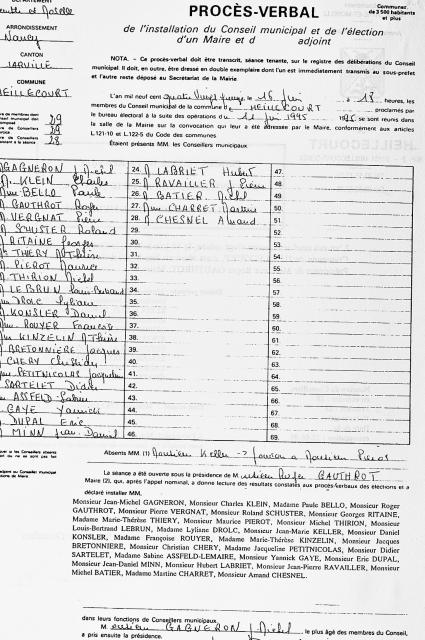 DÉPARTEMENT
Meurthe et Moselle
ARRONDISSEMENT
Nancy
CANTON
JARVILLE
COMMUNE
HEILLECOURT
Communes
de 3 500 habitants
et plus
PROCÈS-VERBAL
de l'installation du Conseil municipal et de l'élection
d'un Maire et d adjoint
NOTA. – Ce procès-verbal doit être transcrit, séance tenante, sur le registre des délibérations du Conseil
municipal. Il doit, en outre, être dressé en double exemplaire dont l'un est immédiatement transmis au sous-préfet
et l'autre reste déposé au Secrétariat de la Mairie.
L'an mil neuf cent quatre vingt quinze le 16 Juin à 18 heures, les
membres du Conseil municipal de la commune de HEILLECOURT proclamés par
le bureau électoral à la suite des opérations du 11 juin 1995 se sont réunis dans
la salle de la Mairie sur la convocation qui leur a été adressée par le Maire, conformément aux articles
L.121-10 et L.122-5 du Code des communes
Étaient présents MM. les Conseillers municipaux
29
29
28
GAGNERON J Michel
M. KLEIN Charles
Mme BELLO Paule
M. GAUTHROT Roger
M. VERGNAT Pierre
M. SCHUSTER Roland
M. RITAINE Georges
THIERY M Thérèse
M. PIEROT Maurice
M. THIRION Michel
M. LEBRUN Louis-Bertrand
Mme DROLC Lyliane
M. KONSLER Daniel
Mme ROUYER Françoise
Mme KINZELIN M Thérèse
M. BRETONNIERE Jacques
M. CHERY Christian
Mme PETITNICOLAS Jacqueline
SARTELET Didier
Mme ASSFELD Sabine
M. GAYE Yannick
M. DUPAL Eric
M. MINN Jean-Daniel
24. M LABRIET Hubert
25. M RAVAILLER J Pierre
26. M BATIER Michel
27. Mme CHARRET Martine
28. M CHESNEL Amand
29.
30.
31.
32.
33.
34.
35.
36.
37.
38.
39.
40.
41.
42.
43.
44.
45.
46.
47.
48.
49.
50.
51.
52.
53.
54.
55.
56.
57.
58.
59.
60.
61.
62.
63.
64.
65.
66.
67.
68.
69.
Absents MM. (1) Monsieur Keller -> pouvoir à Monsieur Pierot
La séance a été ouverte sous la présidence de M onsieur Roger GAUTHROT
Maire (2), qui, après l'appel nominal, a donné lecture des résultats constatés aux procès-verbaux des élections et a
déclaré installer MM.
Monsieur Jean-Michel GAGNERON, Monsieur Charles KLEIN, Madame Paule BELLO, Monsieur Roger
GAUTHROT, Monsieur Pierre VERGNAT, Monsieur Roland SCHUSTER, Monsieur Georges RITAINE,
Madame Marie-Thérèse THIERY, Monsieur Maurice PIEROT, Monsieur Michel THIRION, Monsieur
Louis-Bertrand LEBRUN, Madame Lyliane DROLC, Monsieur Jean-Marie KELLER, Monsieur Daniel
KONSLER, Madame Françoise ROUYER, Madame Marie-Thérèse KINZELIN, Monsieur Jacques
BRETONNIERE, Monsieur Christian CHERY, Madame Jacqueline PETITNICOLAS, Monsieur Didier
SARTELET, Madame Sabine ASSFELD-LEMAIRE, Monsieur Yannick GAYE, Monsieur Eric DUPAL,
Monsieur Jean-Daniel MINN, Monsieur Hubert LABRIET, Monsieur Jean-Pierre RAVAILLER, Monsieur
Michel BATIER, Madame Martine CHARRET, Monsieur Amand CHESNEL.
dans leurs fonctions de Conseillers municipaux.
M onsieur GAGNERON J Michel, le plus âgé des membres du Conseil,
a pris ensuite la présidence.